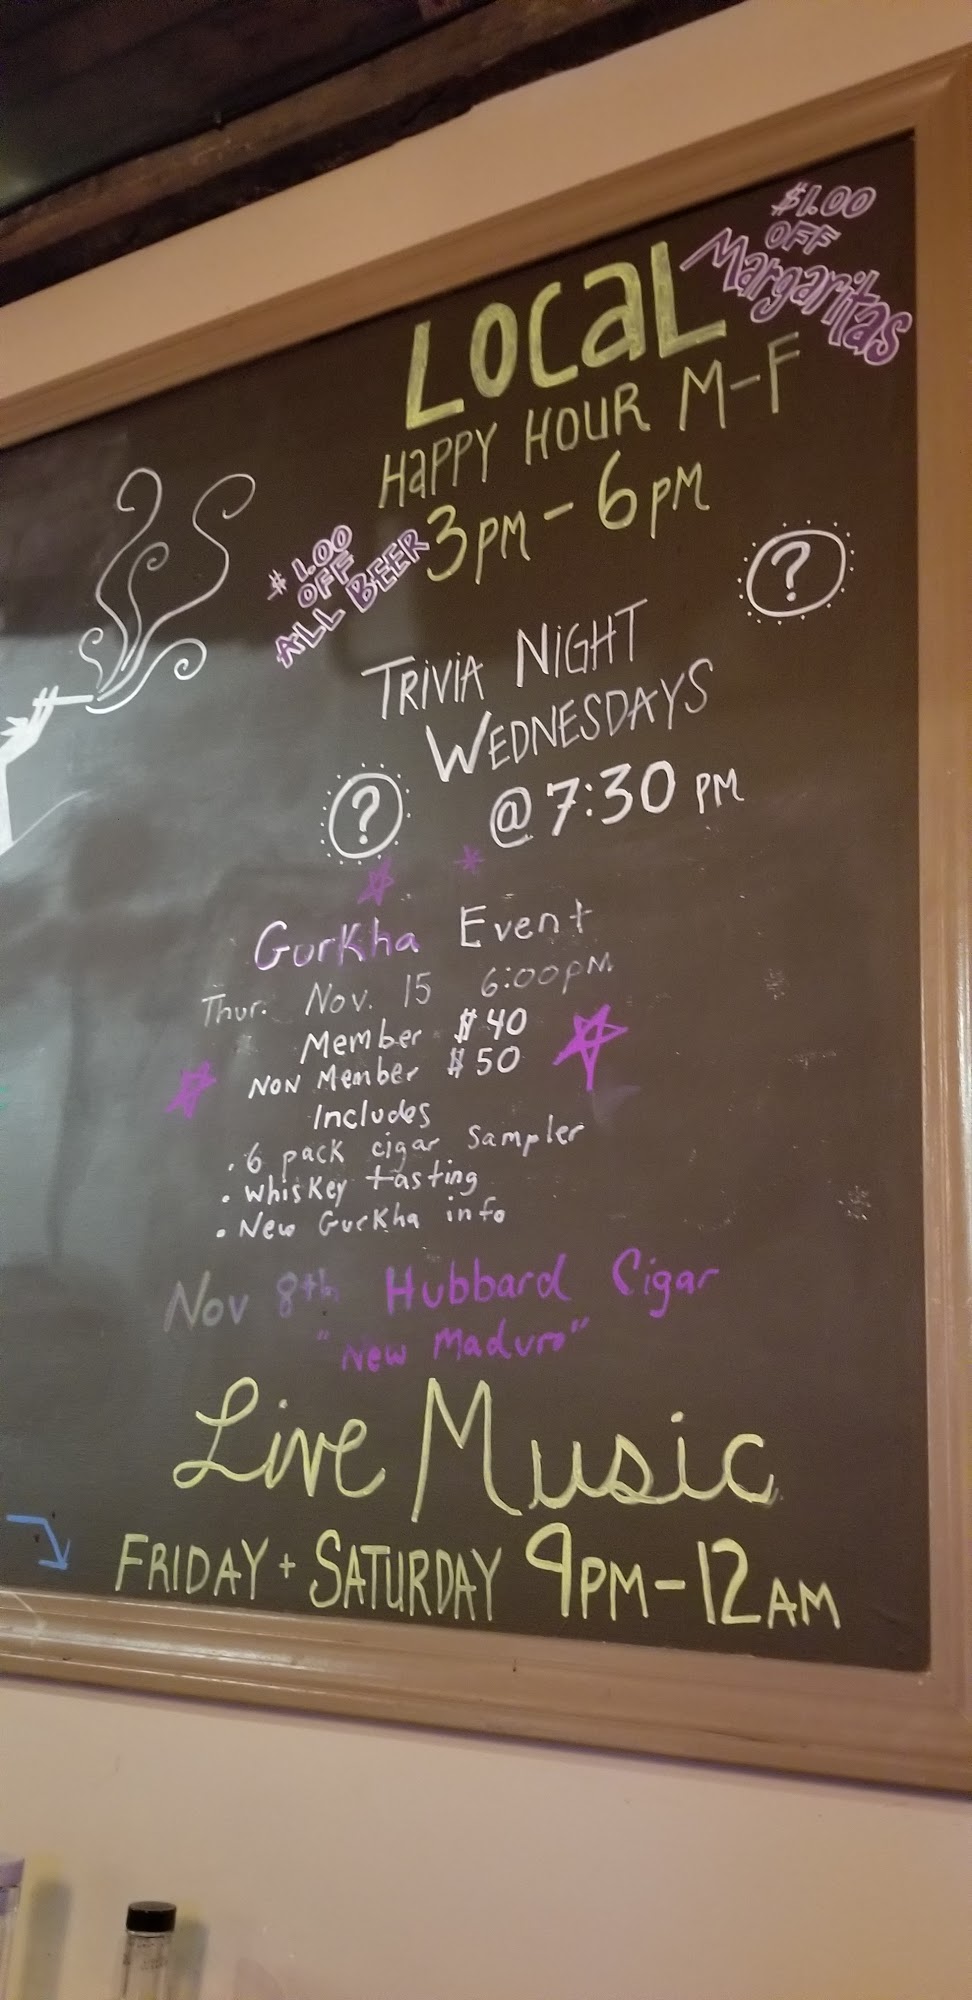 $1.00
OFF
Margaritas
LOCAL
HAPPY HOUR M-F
3PM - 6PM
$1.00
OFF
ALL BEER
?
TRIVIA NIGHT
WEDNESDAYS
@ 7:30 PM
?
Gurkha Event
Thur. Nov. 15 6:00PM
Member $40
NON Member $50
Includes
• 6 pack cigar sampler
• Whiskey tasting
• New Gurkha info
Nov 8th Hubbard Cigar
"New Maduro"
Live Music
FRIDAY + SATURDAY 9PM-12AM